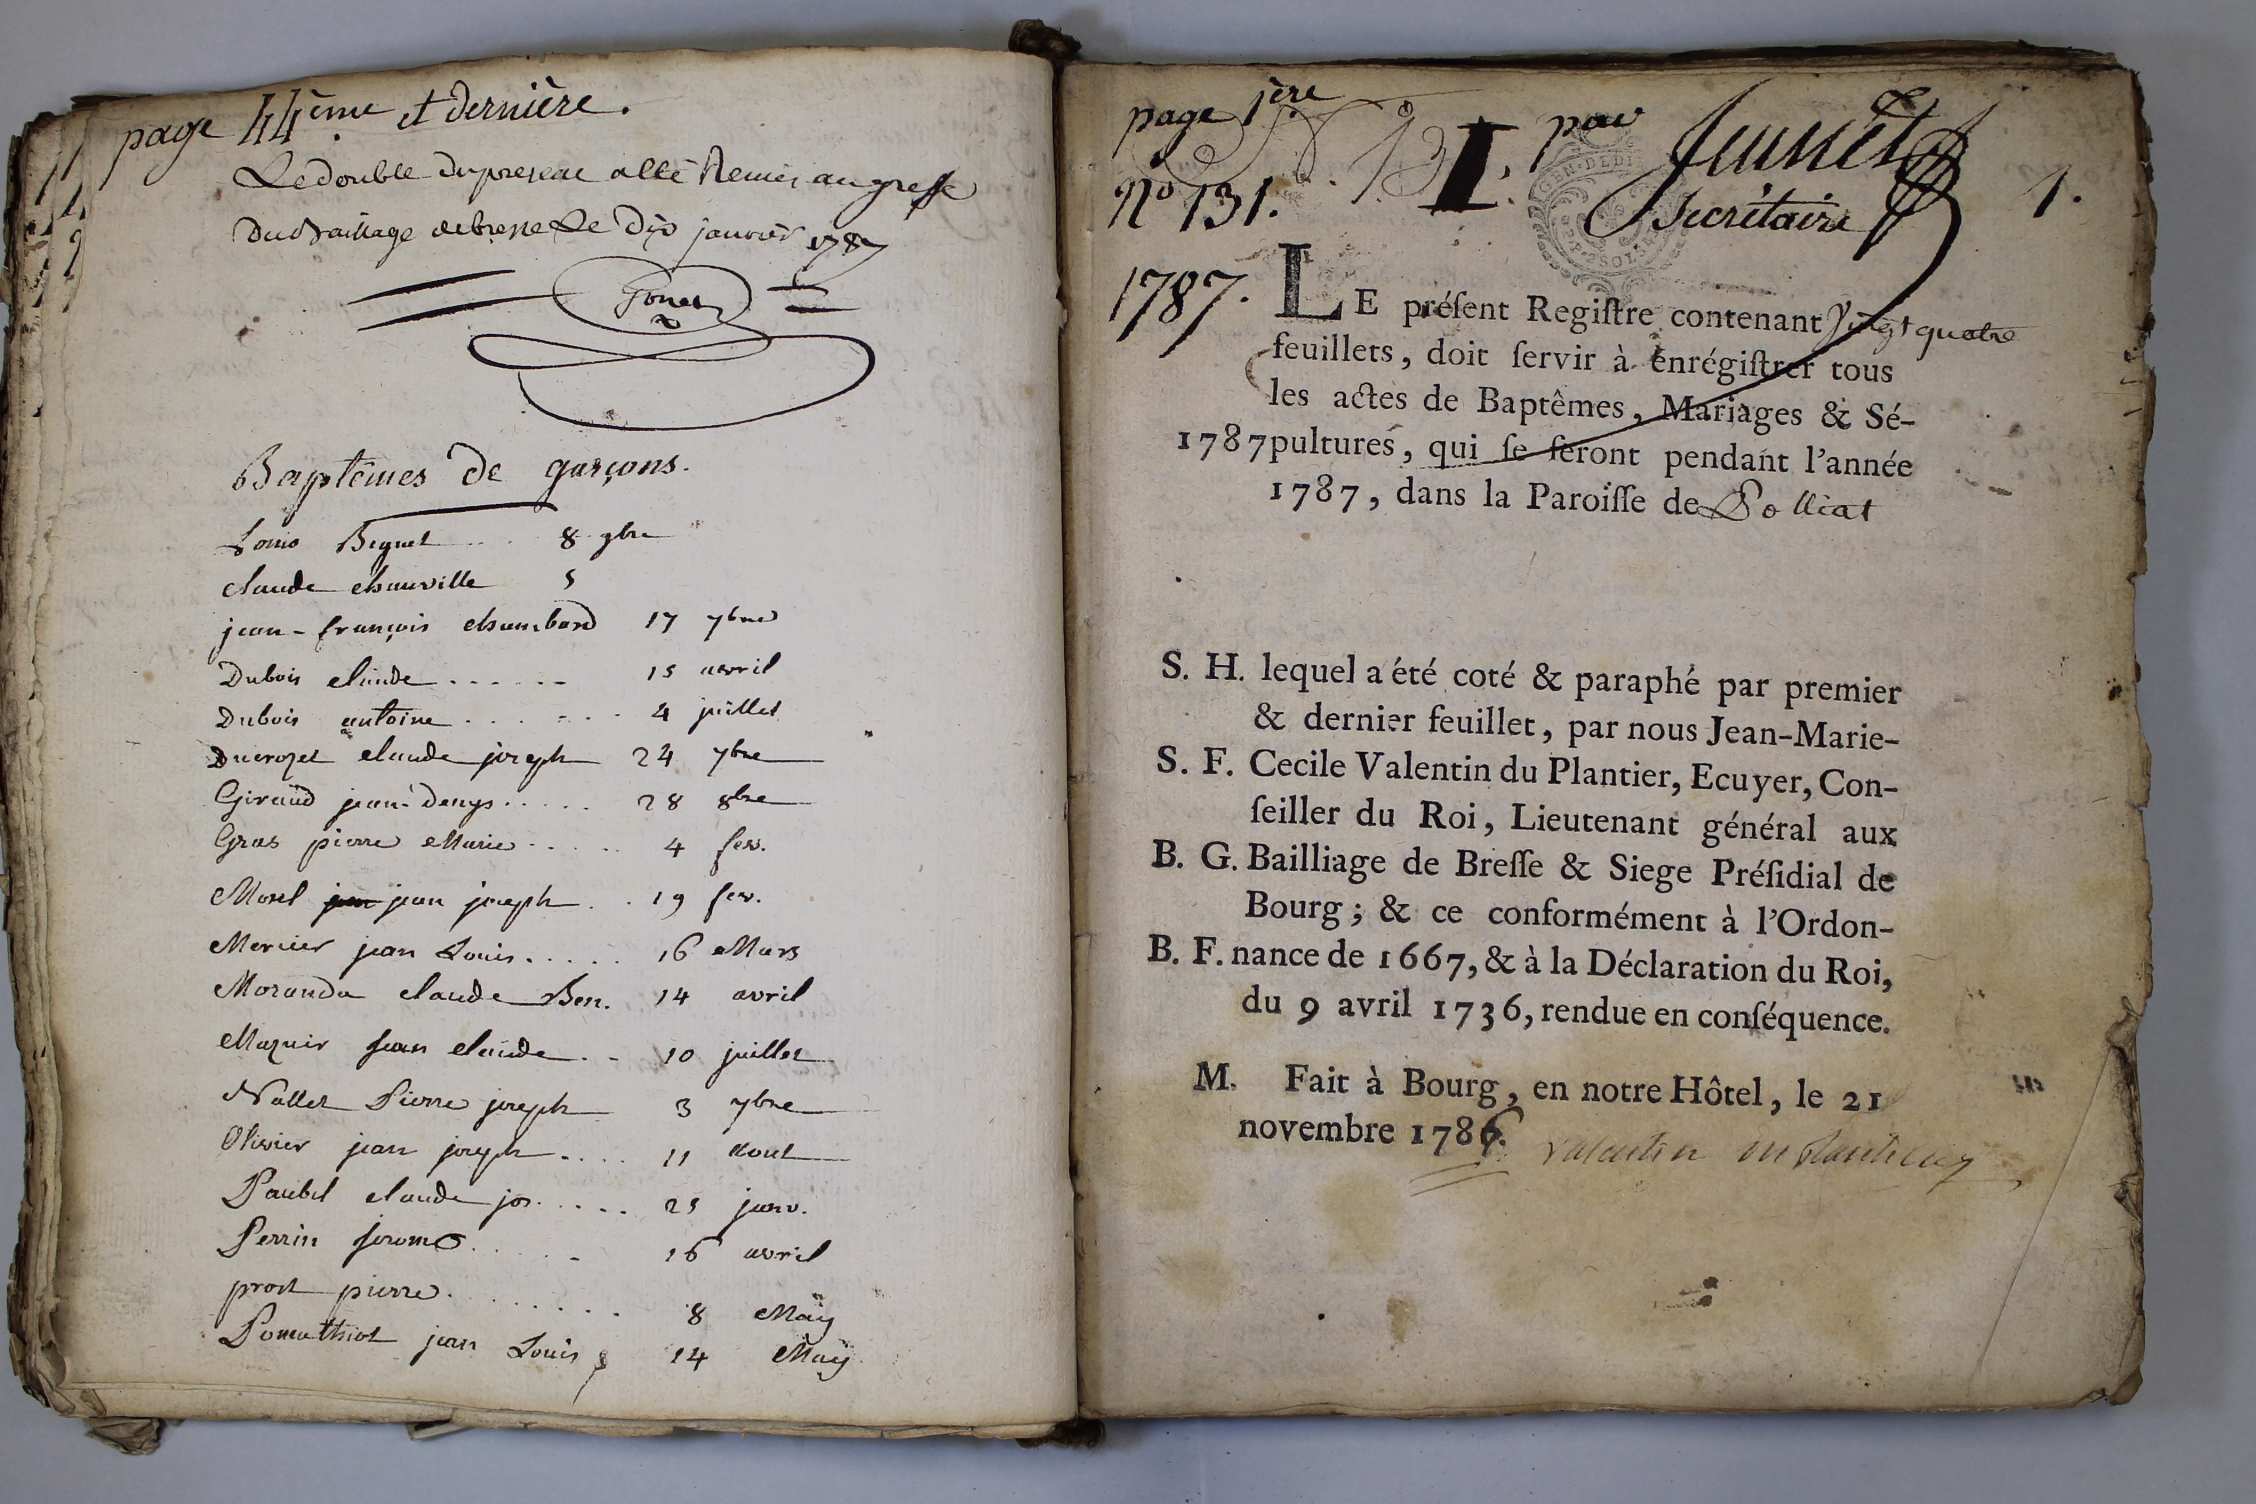 page 44ème et dernière.
Le double du present a été Remis au greffe
du Bailliage de bresse Le Dix janvier 1787
Baptêmes de garçons.
Louis Biguet 8 9bre
claude chanville 5
jean-françois chambard 17 7bre
Dubois claude ...... 15 avril
Dubois antoine ...... 4 juillet
Ducrozet claude joseph 24 7bre
Giraud jean-denys ..... 28 8bre
Gras pierre Marie ..... 4 fev.
Morel jean joseph .. 19 fev.
Mercier jean Louis ..... 16 Mars
Morandu claude Ben. 14 avril
Mazuir jean claude .. 10 juillet
Nallet Pierre joseph 3 7bre
Olivier jean joseph .... 11 aout
Paubel claude jos. .... 25 janv.
Perrin jerome ..... 16 avril
prost pierre ....... 8 May
Pomathiot jean Louis 14 May
page 1ère
par
No 131.
Secrétaire
1.
1787.
LE préſent Regiſtre contenant vingt quatre
feuillets, doit ſervir à enrégiſtrer tous
les actes de Baptêmes, Mariages & Sé-
1787 pultures, qui ſe feront pendant l'année
1787, dans la Paroiſſe de Polliat
S. H. lequel a été coté & paraphé par premier
& dernier feuillet, par nous Jean-Marie-
S. F. Cecile Valentin du Plantier, Ecuyer, Con-
ſeiller du Roi, Lieutenant général aux
B. G. Bailliage de Breſſe & Siege Préſidial de
Bourg; & ce conformément à l'Ordon-
B. F. nance de 1667, & à la Déclaration du Roi,
du 9 avril 1736, rendue en conſéquence.
M. Fait à Bourg, en notre Hôtel, le 21
novembre 1786.
Valentin du Plantier